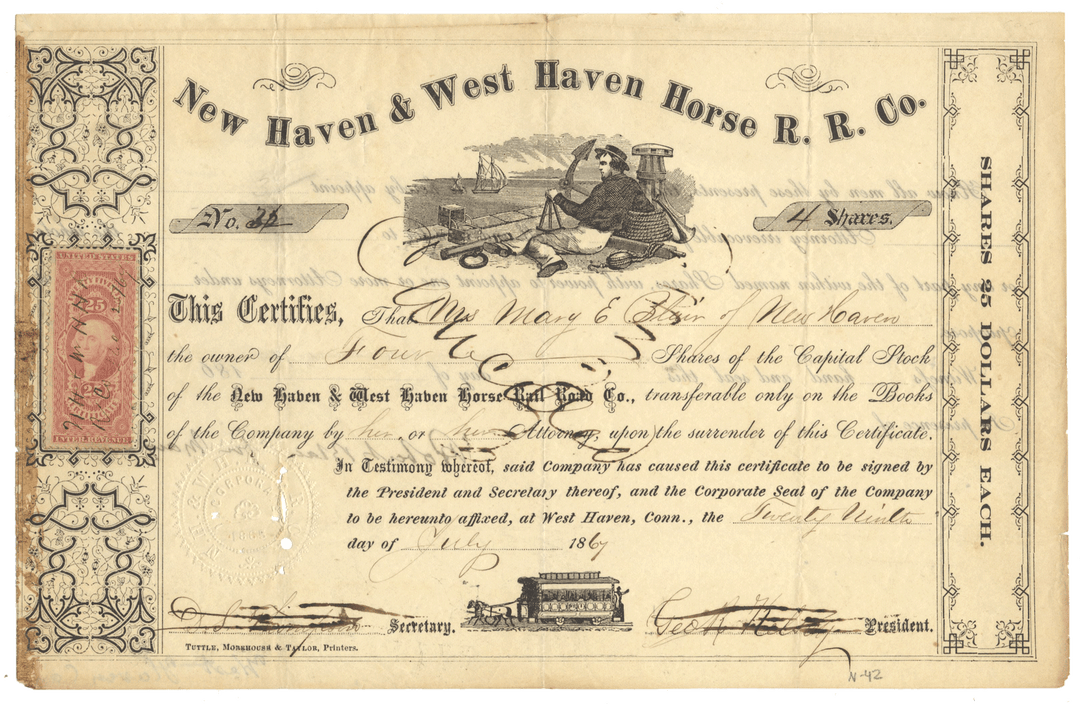 New Haven & West Haven Horse R. R. Co.
No. 32
4 Shares.
This Certifies, That Mrs Mary E Blair of New Haven
the owner of Four Shares of the Capital Stock
of the New Haven & West Haven Horse Rail Road Co., transferable only on the Books
of the Company by her or her Attorney, upon the surrender of this Certificate.
In Testimony whereof, said Company has caused this certificate to be signed by
the President and Secretary thereof, and the Corporate Seal of the Company
to be hereunto affixed, at West Haven, Conn., the Twenty Ninth
day of July 1867
Secretary.
Geo R Kelsey President.
TUTTLE, MOREHOUSE & TAYLOR, Printers.
SHARES 25 DOLLARS EACH.
UNITED STATES
25
INTER. REVENUE
N-42